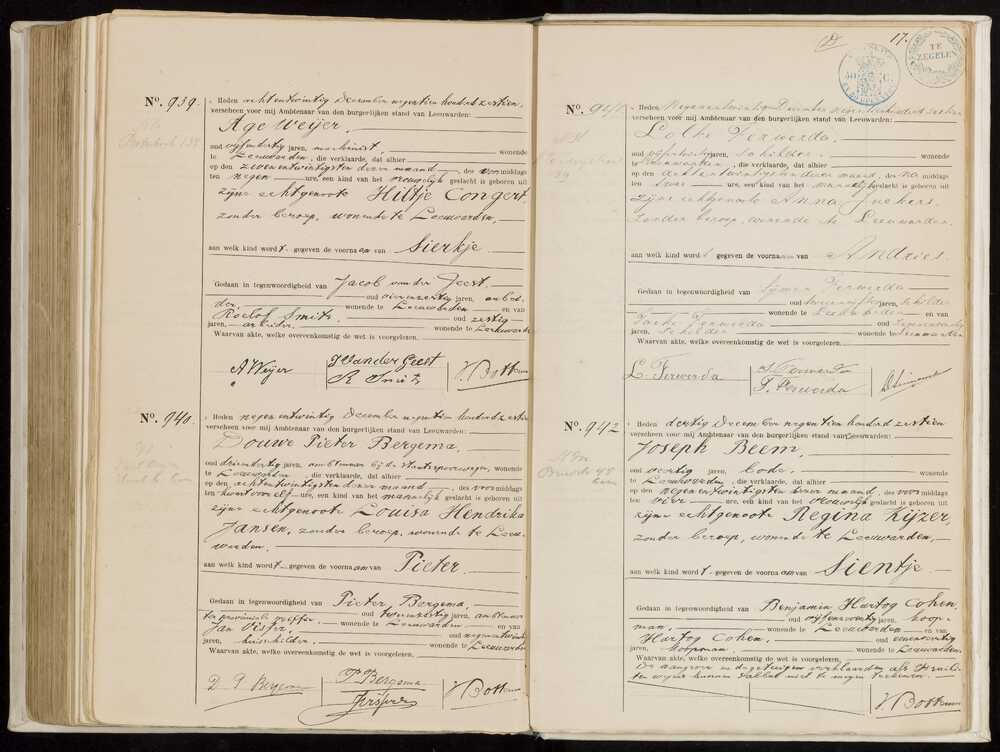 No. 939.
Heden achtentwintig December negentien honderd zestien,
verscheen voor mij Ambtenaar van den burgerlijken stand van Leeuwarden:
Age Weijer.
oud vijfendertig jaren, machinist, wonende
te Leeuwarden, die verklaarde, dat alhier
op den zevenentwintigsten dezer maand, des voormiddags
ten negen ure, een kind van het vrouwelijk geslacht is geboren uit
zijne echtgenoote Hiltje Congert,
zonder beroep, wonende te Leeuwarden,
aan welk kind wordt gegeven de voornaam van Sierkje
Gedaan in tegenwoordigheid van Jacob van der Geest,
oud jaren, arbei-
der, wonende te Leeuwarden en van
Roelof Smits, oud zestig
jaren, arbeider, wonende te Leeuwarden
Waarvan akte, welke overeenkomstig de wet is voorgelezen.
A Weijer
J van der Geest
R Smits
No. 940.
Heden negenentwintig December negentien honderd zestien
verscheen voor mij Ambtenaar van den burgerlijken stand van Leeuwarden:
Douwe Pieter Bergema,
oud drieendertig jaren, ambtenaar bij de staatsspoorwegen, wonende
te Leeuwarden, die verklaarde, dat alhier
op den achtentwintigsten dezer maand, des voormiddags
ten kwart voor elf ure, een kind van het mannelijk geslacht is geboren uit
zijne echtgenoote Louisa Hendrika
Jansen, zonder beroep, wonende te Leeu-
warden.
aan welk kind wordt gegeven de voornaam van Pieter.
Gedaan in tegenwoordigheid van Pieter Bergema,
oud jaren, ambtenaar
ter provinciale griffie, wonende te Leeuwarden en van
Jan Visser, oud
jaren, huisschilder, wonende te Leeuwarden
Waarvan akte, welke overeenkomstig de wet is voorgelezen.
D. P. Bergema
P. Bergema
17.
TE
ZEGELEN
No. 941
Heden Negenentwintig December negentienhonderd zestien
verscheen voor mij Ambtenaar van den burgerlijken stand van Leeuwarden:
Ferwerda
oud jaren, schilder wonende
te Leeuwarden, die verklaarde, dat alhier
op den achtentwintigsten dezer maand, des na middags
ten twee ure, een kind van het mannelijk geslacht is geboren uit
zijne echtgenoote Anna
zonder beroep, wonende te Leeuwarden.
aan welk kind wordt gegeven de voornaam van Andries.
Gedaan in tegenwoordigheid van Sijmen Ferwerda
oud jaren, schilder
wonende te Leeuwarden en van
Ferwerda oud
jaren, schilder wonende te Leeuwarden
Waarvan akte, welke overeenkomstig de wet is voorgelezen.
L. Ferwerda
S. Ferwerda
F. Ferwerda
No. 942
Heden dertig December negentien honderd zestien
verscheen voor mij Ambtenaar van den burgerlijken stand van Leeuwarden:
Joseph Beem.
oud veertig jaren, bode. wonende
te Leeuwarden, die verklaarde, dat alhier
op den negenentwintigsten dezer maand, des voormiddags
ten vier ure, een kind van het vrouwelijk geslacht is geboren uit
zijne echtgenoote Regina Kijzer,
zonder beroep, wonende te Leeuwarden,
aan welk kind wordt gegeven de voornaam van Sientje.
Gedaan in tegenwoordigheid van Benjamin Hartog Cohen,
oud jaren, koop-
man, wonende te Leeuwarden en van
Hartog Cohen, oud
jaren, koopman, wonende te Leeuwarden.
Waarvan akte, welke overeenkomstig de wet is voorgelezen.
De aangever en de getuigen verklaarden als Israëli-
ten wegens hunnen sabbat niet te mogen teekenen.